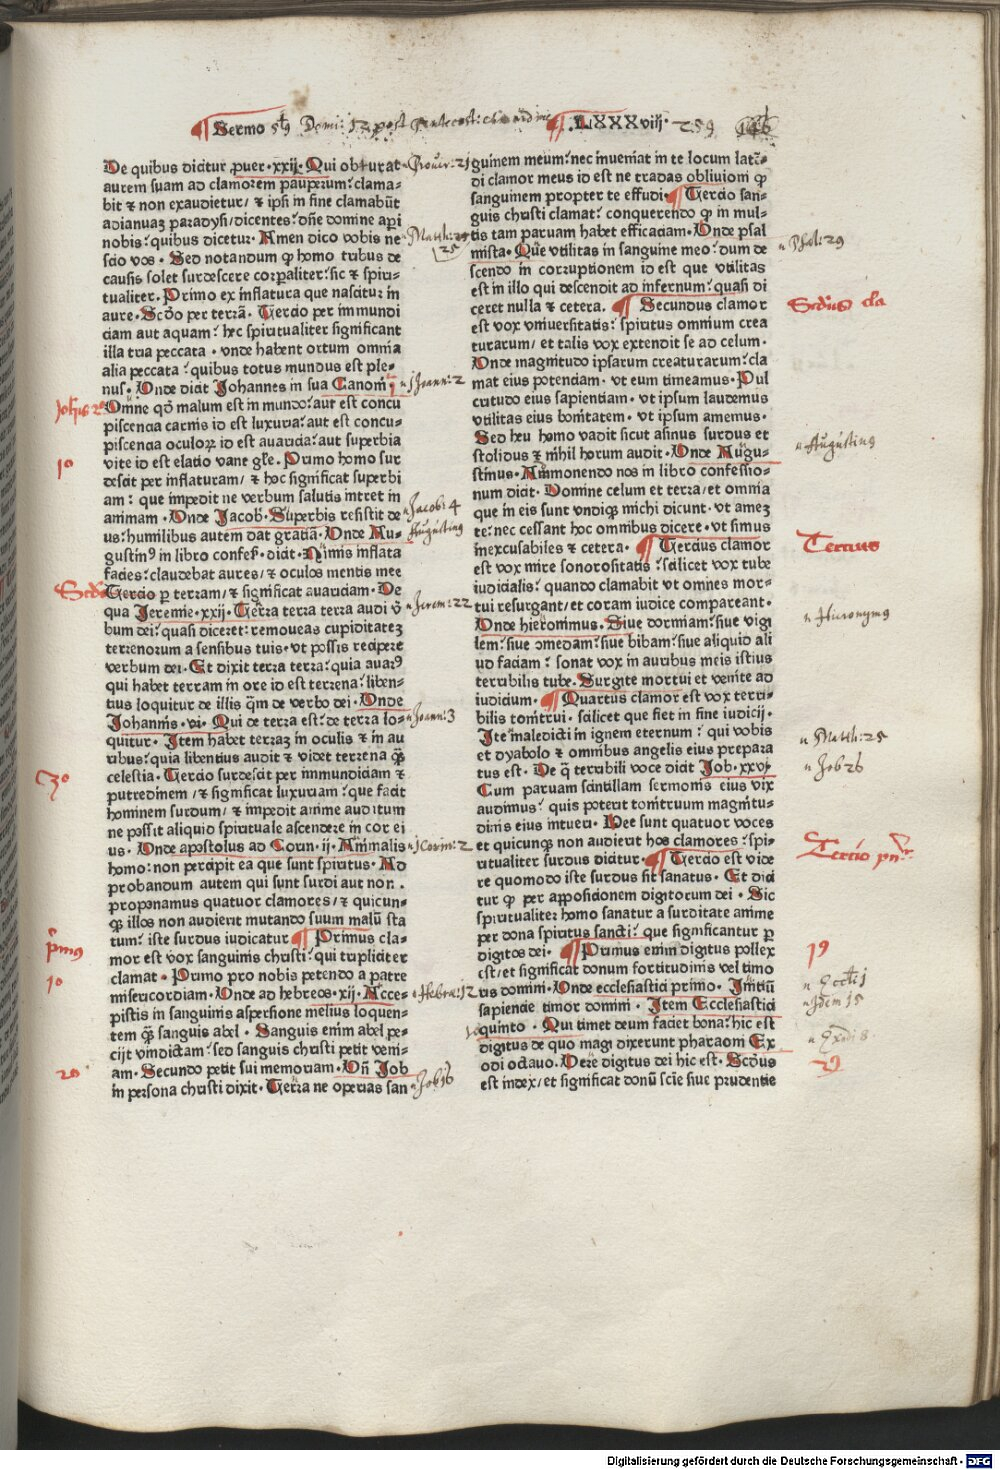 ¶ Sermo Domi: 12 post pentecost: .LXXXviij. 259
De quibus dicitur puer·xxij· Qui obturat
aurem suam ad clamorem pauperum: clama-
bit ⁊ non exaudietur/ ⁊ ipsi in fine clamabūt
ad ianuaꝫ paradysi/ dicentes: dñe domine aperi
nobis: quibus dicetur. Amen dico vobis ne
scio vos. Sed notandum ꝙ homo tribus de
causis solet surdescere corꝑaliter: sic ⁊ spiri-
tualiter. Primo ex inflatura que nascitur in
aure. Scḋo per terrā. Tercio per immundi
ciam aut aquam: hec spiritualiter significant
illa tria peccata. vnde habent ortum omnia
alia peccata: quibus totus mundus est ple-
nus. Onde dicit Johannes in sua Canoni
Omne qḋ malum est in mundo: aut est concu
piscencia carnis id est luxuria: aut est concu-
piscencia oculoꝝ id est auaricia: aut superbia
vite id est elatio vane gl̄e. Primo homo sur
descit per inflaturam/ ⁊ hoc significat superbi
am: que impedit ne verbum salutis intret in
animam. Onde Jacob. Superbis resistit de
us: humilibus autem dat gratiā. Onde Au-
gustin⁹ in libro confes. dicit. Nimis inflata
facies: claudebat aures/ ⁊ oculos mentis mee
Tercio ꝑ terram/ ⁊ significat auariciam. De
qua Jeremie.xxij. Terra terra terra audi v̄
bum dei: quasi diceret: remoueas cupiditateꝫ
terrenorum a sensibus tuis. vt possis recipere
verbum dei. Et dixit terra terra: quia auar⁹
qui habet terram in ore id est terrena: liben-
tius loquitur de illis q̄m de verbo dei. Onde
Johannis.vi. Qui de terra est: de terra lo-
quitur. Item habet terraꝫ in oculis ⁊ in au
ribus: quia libentius audit ⁊ videt terrena q̄ꝫ
celestia. Tercio surdescit per immundiciam ⁊
putredinem/ ⁊ significat luxuriam: que facit
hominem surdum/ ⁊ impedit anime auditum
ne possit aliquid spirituale ascendere in cor ei
us. Onde apostolus ad Corin.ij. Animalis
homo: non percipit ea que sunt spiritus. Ad
probandum autem qui sunt surdi aut non.
proponamus quatuor clamores/ ⁊ quicun-
qꝫ illos non audierit mutando suum malū sta
tum: iste surdus iudicatur ¶ Primus cla-
mor est vox sanguinis christi: qui tripliciter
clamat. Primo pro nobis petendo a patre
misericordiam. Onde ad hebreos.xij. Acce-
pistis in sanguinis aspersione melius loquen-
tem q̄ꝫ sanguis abel. Sanguis enim abel pe-
cijt vindictam: sed sanguis christi petit veni-
am. Secundo petit sui memoriam. Oñ Job
in persona christi dixit. Terra ne operias san
guinem meum: nec inueniat in te locum latē-
di clamor meus id est ne tradas obliuioni ꝙ
sanguinem propter te effudi. ¶ Tercio san-
guis christi clamat: conquerendo ꝙ in mul-
tis tam paruam habet efficaciam. Onde psal
mista. Que vtilitas in sanguine meo: dum de
scendo in corruptionem id est que vtilitas
est in illo qui descendit ad infernum: quasi di
ceret nulla ⁊ cetera. ¶ Secundus clamor
est vox vniuersitatis: spiritus omnium crea
turarum/ et talis vox extendit se ad celum.
Onde magnitudo ipsarum creaturarum: cla
mat eius potenciam. vt eum timeamus. Pul
critudo eius sapienciam. vt ipsum laudemus
vtilitas eius bonitatem. vt ipsum amemus.
Sed heu homo vadit sicut asinus surdus et
stolidus ⁊ nihil horum audit. Onde Augu-
stinus. Ammonendo nos in libro confessio-
num dicit. Domine celum et terra/ et omnia
que in eis sunt vndiqꝫ michi dicunt. vt ameꝫ
te: nec cessant hoc omnibus dicere. vt simus
inexcusabiles ⁊ cetera. ¶ Tercius clamor
est vox mire sonorositatis: scilicet vox tube
iudicialis: quando clamabit vt omnes mor-
tui resurgant/ et coram iudice compareant.
Onde hieronimus. Siue dormiam: siue vigi
lem: siue ↄmedam: siue bibam: siue aliquid ali
ud faciam: sonat vox in auribus meis istius
terribilis tube. Surgite mortui et venite ad
iudicium. ¶ Quartus clamor est vox terri-
bilis tonitrui. scilicet que fiet in fine iudicij.
Ite maledicti in ignem eternum: qui vobis
et dyabolo ⁊ omnibus angelis eius prepara
tus est. De q̄ terribili voce dicit Job.xxvi.
Cum paruam scintillam sermonis eius vix
audimus: quis poterit tonitruum magnitu-
dinis eius intueri. Hee sunt quatuor voces
et quicunqꝫ non audierit hos clamores: spi-
ritualiter surdus dicitur. ¶ Tercio est vide
re quomodo iste surdus sit sanatus. Et dici
tur ꝙ per appositionem digitorum dei. Sic
spiritualiter homo sanatur a surditate anime
per dona spiritus sancti: que significantur ꝑ
digitos dei. ¶ Primus enim digitus pollex
est/ et significat donum fortitudinis vel timo
ris domini. Onde ecclesiastici primo. Initiū
sapiencie timor domini. Item Ecclesiastici
quinto. Qui timet deum faciet bona: hic est
digitus de quo magi dixerunt pharaoni Ex
odi octauo. Vere digitus dei hic est. Scḋus
est index/ et significat donū scīe siue prudentie
Prouer: 21
Matth: 25
1 Joann: 2
1º
Jacob: 4
Augustinꝰ
Jerem: 22
Joann: 3
3º
1 Corin: 2
primꝰ
1º
Hebræ: 12
2º
Job 16
Psal: 29
Scḋus cla
Augustinꝰ
Tercius
Hieronymꝰ
Matth: 25
Job 26
Tercio
Eccli 1
Idem 15
Exodi 8
Digitalisierung gefördert durch die Deutsche Forschungsgemeinschaft - DFG